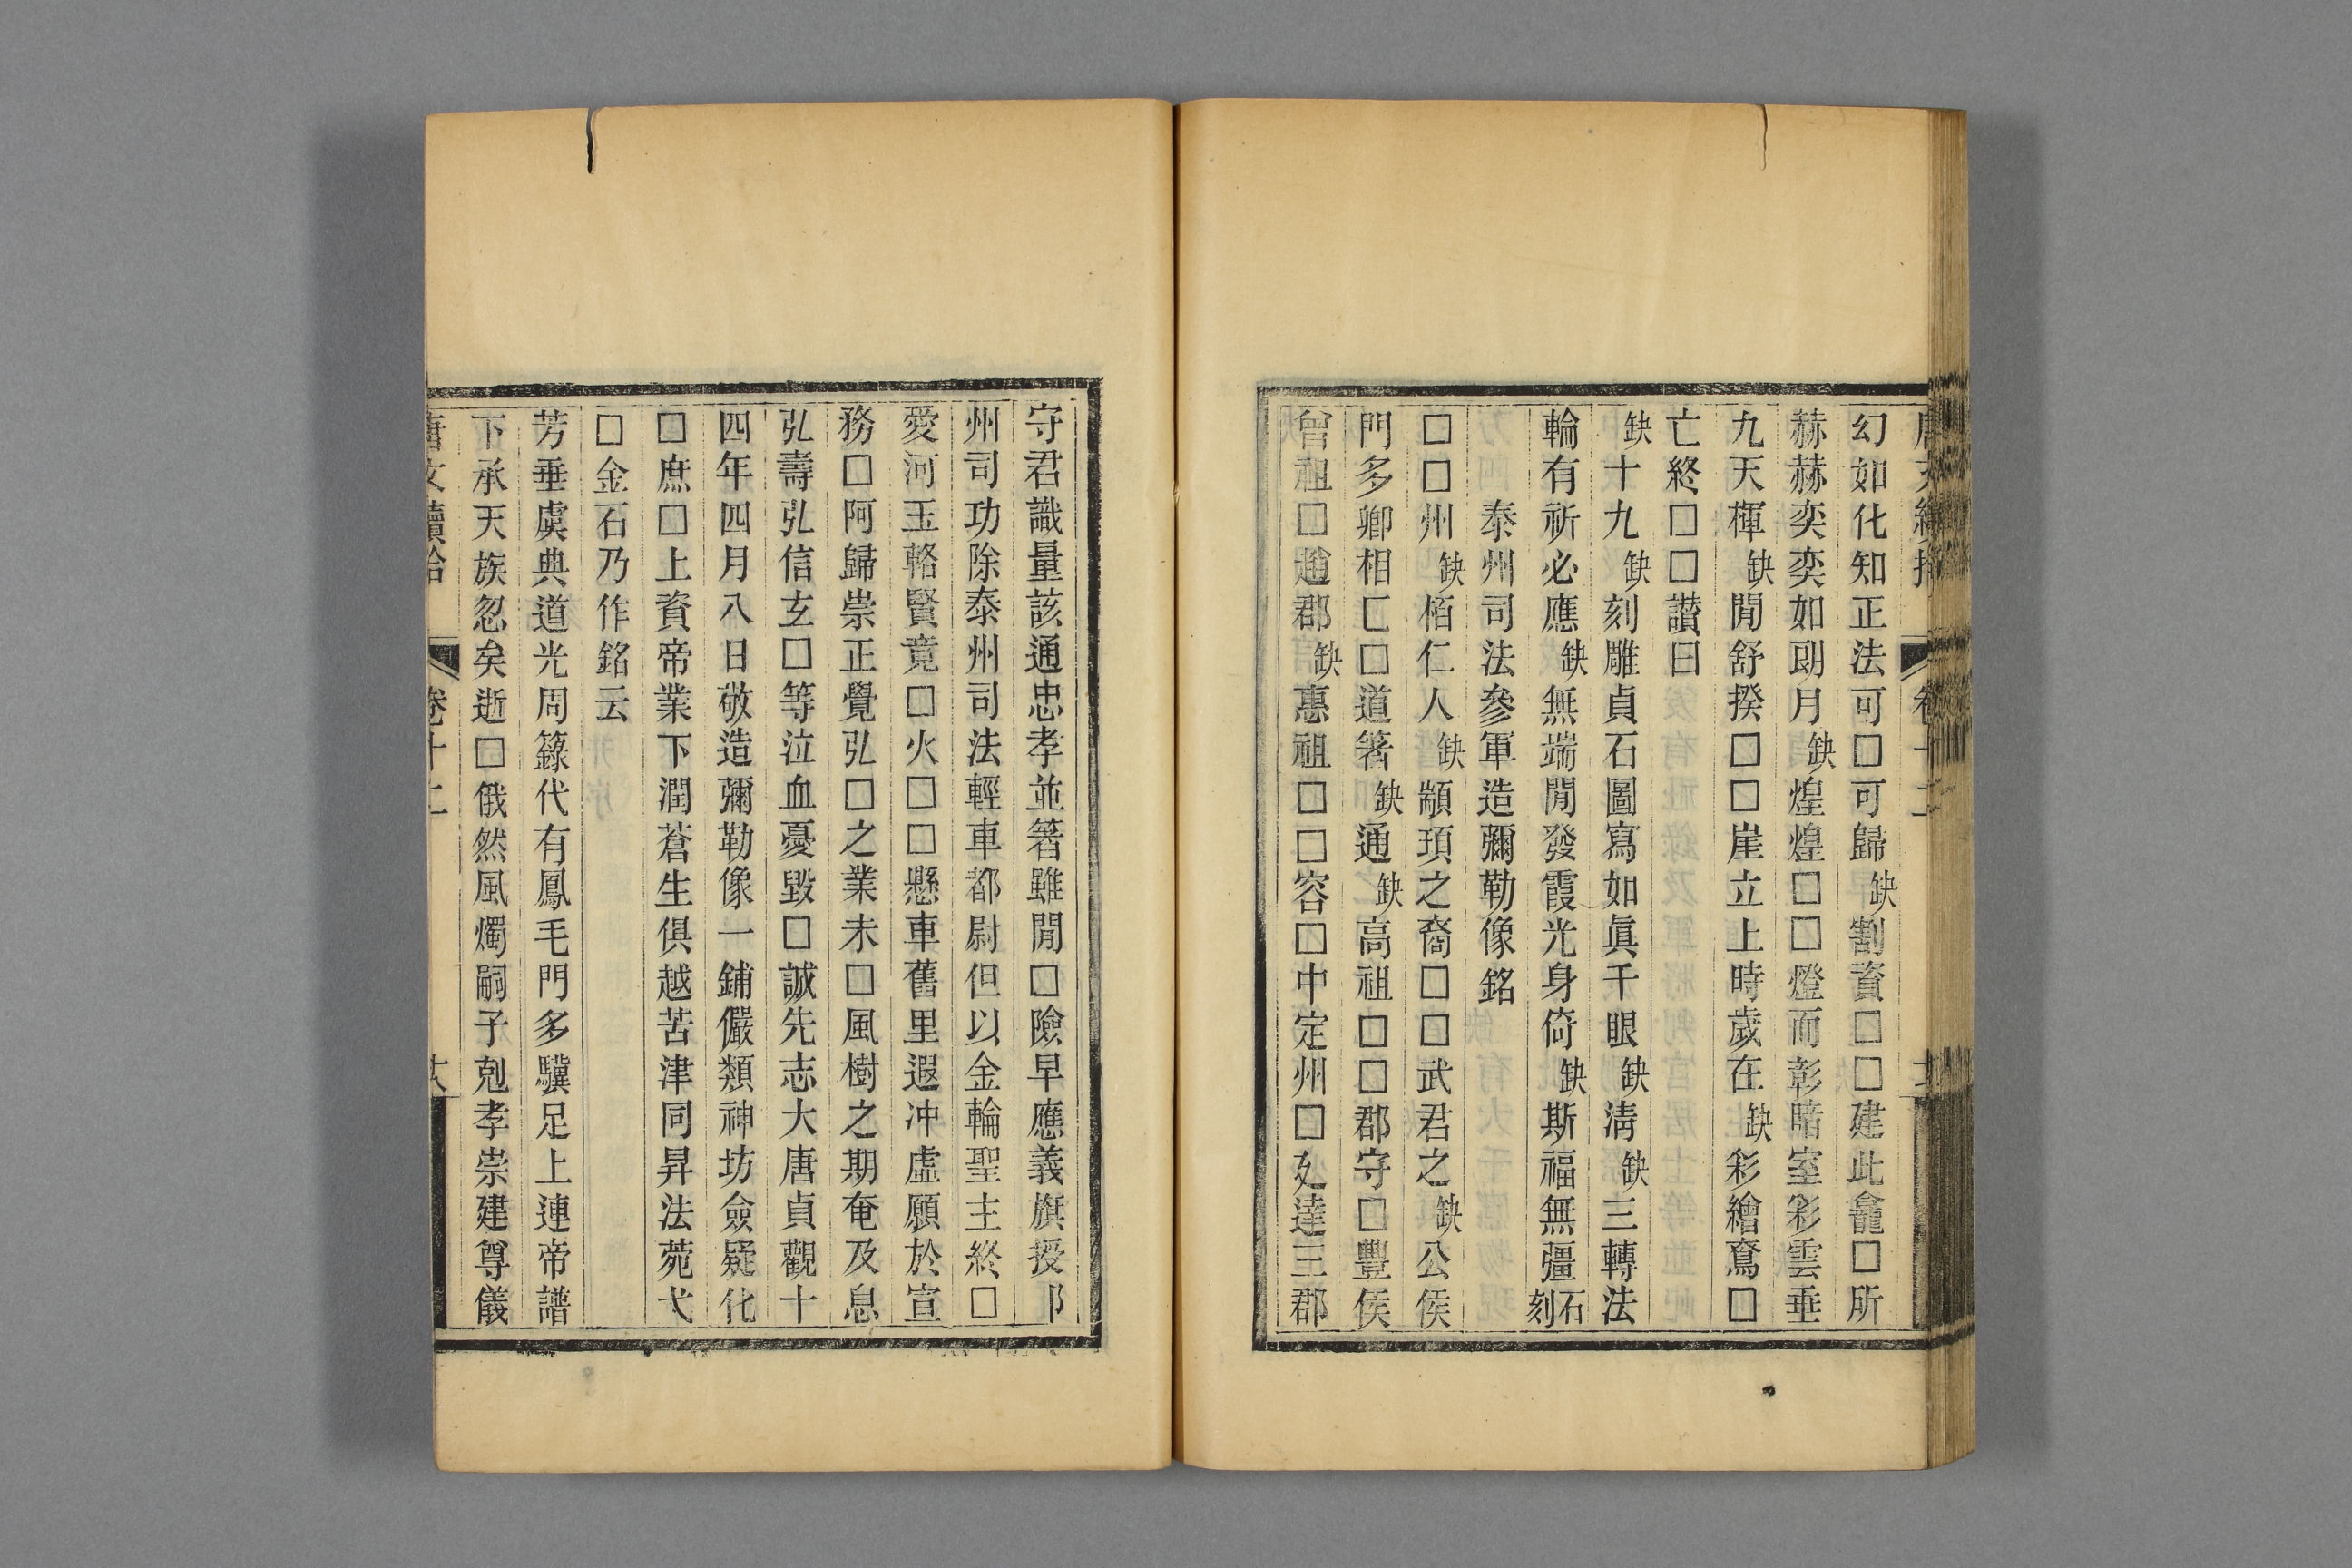 幻如化知正法可□可歸缺割資□□建此龕□所
赫赫奕奕如朙月缺煌煌□□燈而彰暗室彩雲垂
九天楎缺閒舒揆□□崖立上時歲在缺彩繪鴌□
亡終□□讃曰
缺十九缺刻雕貞石圖寫如眞千眼缺淸缺三轉法
輪有祈必應缺無端閒發霞光身倚缺斯福無疆石刻
泰州司法參軍造彌勒像銘
□□州缺栢仁人缺顓頊之裔□□武君之缺公侯
門多卿相匚□道箸缺通缺高祖□□郡守□豐侯
曾祖□趙郡缺惠祖□□容□中定州□廴達三郡
守君識量該通忠孝並箸雖閒□險早應義旗授卩
州司功除泰州司法輕車都尉但以金輪聖主終□
愛河玉輅賢竟□火□□懸車舊里遐冲虛願於宣
務□阿歸崇正覺弘□之業未□風樹之期奄及息
弘壽弘信玄□等泣血憂毀□誠先志大唐貞觀十
四年四月八日敬造彌勒像一鋪儼類神坊僉疑化
□庶□上資帝業下潤蒼生俱越苦津同昇法菀弋
□金石乃作銘云
芳垂虞典道光周籙代有鳳毛門多驥足上連帝譜
下承天族忽矣逝□俄然風燭嗣子剋孝崇建尊儀
唐文續拾 卷十二 六